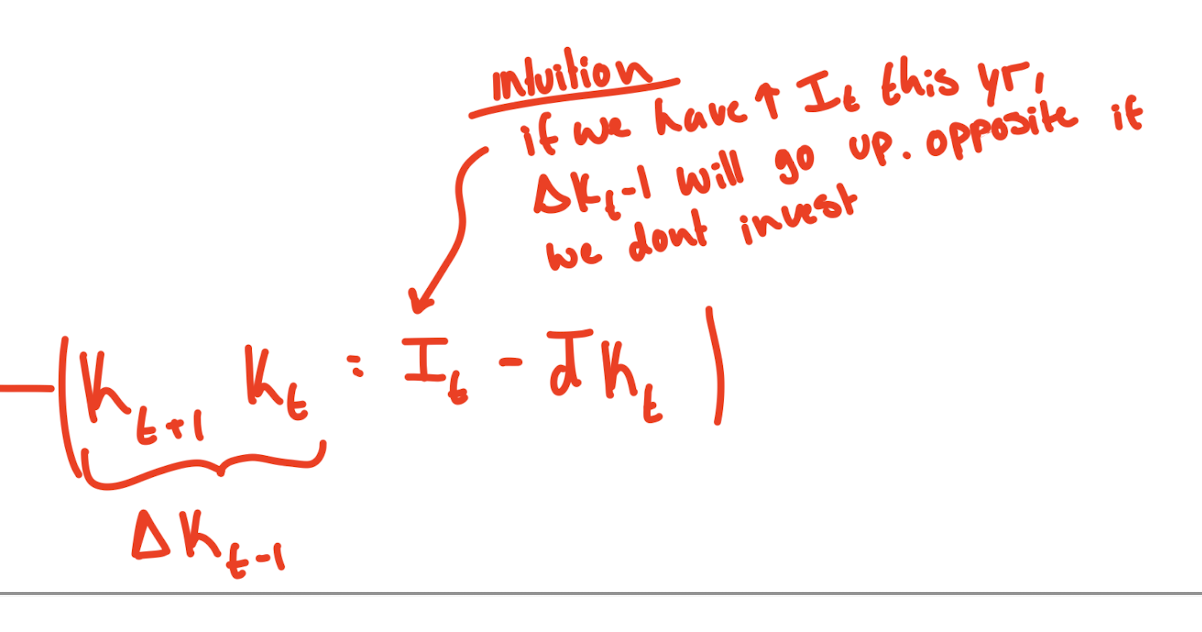 intuition
if we have ↑ I_t this yr,
ΔK_t-1 will go up. opposite if
we dont invest
(K_{t+1} K_t = I_t - d̅K_t)
ΔK_{t-1}